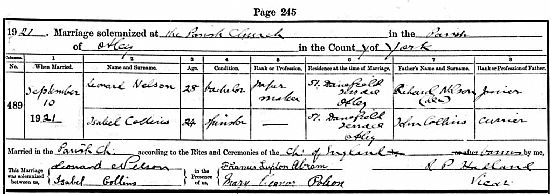 Page 245
1921. Marriage solemnized at the Parish Church in the Parish
of Otley in the County of York
Columns. 1 2 3 4 5 6 7 8
No. When Married. Name and Surname. Age. Condition. Rank or Profession. Residence at the time of Marriage. Father's Name and Surname. Rank or Profession of Father.
489 September 10 1921 Leonard Nelson 28 Bachelor Paper maker Terrace Otley Richard Nelson Joiner
Isabel Collins 24 Spinster — Terrace Otley John Collins Currier
Married in the Parish Ch. according to the Rites and Ceremonies of the Ch. of England or after Banns by me,
This Marriage was solemnized between us, Leonard Nelson in the Presence of us,
Isabel Collins Mary Vicar